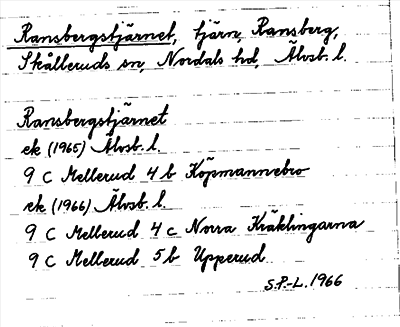 Ransbergstjärnet, tjärn, Ransberg,
Skålleruds sn, Nordals hd, Älvsb. l.
Ransbergstjärnet
ek (1965) Älvsb. l.
9 C Mellerud 4 b Köpmannebro
ek (1966) Älvsb. l.
9 C Mellerud 4 c Norra Kräklingarna
9 C Mellerud 5 b Upperud
S.P.-L. 1966